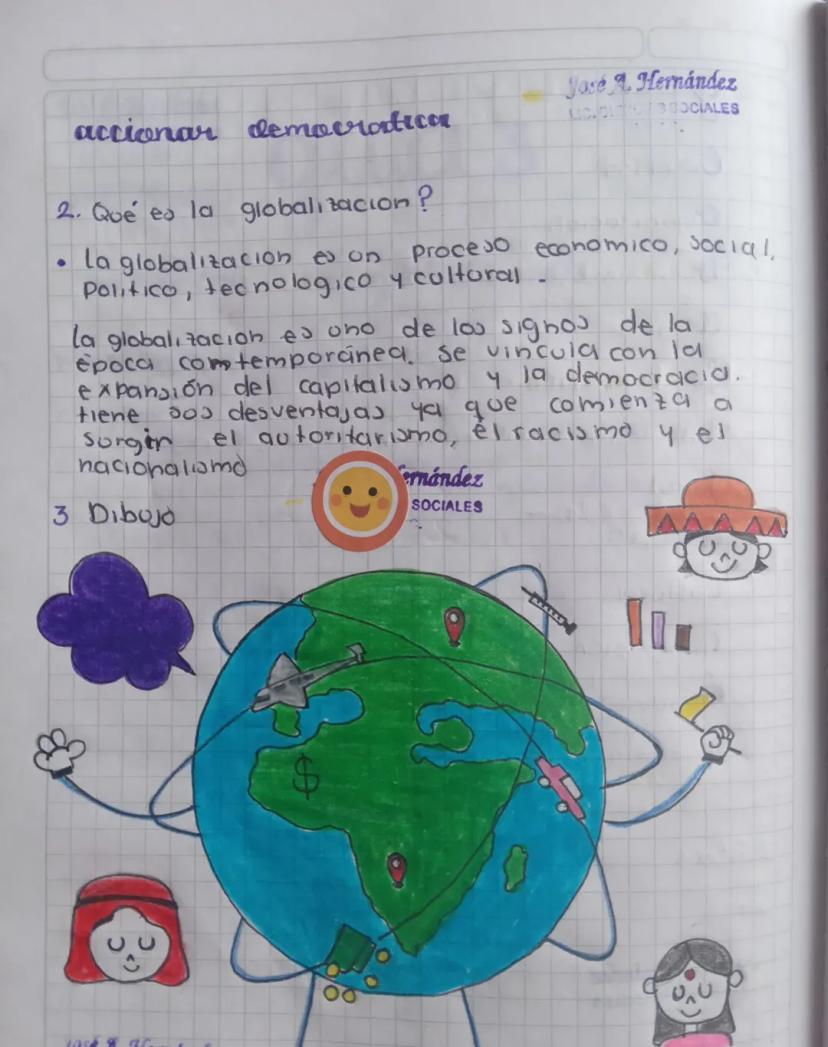 José A. Hernández
SOCIALES
accionar democratica
2. Qué es la globalizacion?
• La globalizacion es un proceso economico, social,
politico, tecnologico y cultural.
La globalizacion es uno de los signos de la
época comtemporánea. Se vincula con la
expansión del capitalismo y la democracia.
tiene sus desventajas ya que comienza a
surgir el autoritarismo, el racismo y el
nacionalismo
ernández
SOCIALES
3 Dibujo
$